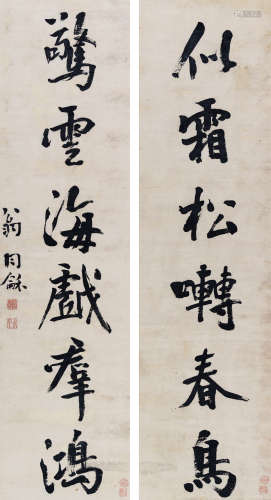 似霜松囀春鳥
驚雲海戲羣鴻
翁同龢